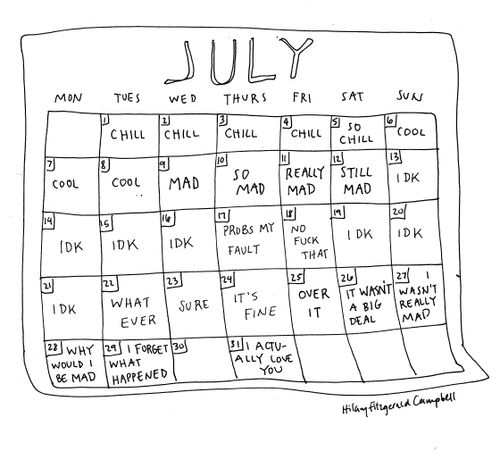 JULY
MON TUES WED THURS FRI SAT SUN
1 CHILL
2 CHILL
3 CHILL
4 CHILL
5 SO
CHILL
6 COOL
7 COOL
8 COOL
9 MAD
10 SO
MAD
11 REALLY
MAD
12 STILL
MAD
13 IDK
14 IDK
15 IDK
16 IDK
17 PROBS MY
FAULT
18 NO
FUCK
THAT
19 IDK
20 IDK
21 IDK
22 WHAT
EVER
23 SURE
24 IT'S
FINE
25 OVER
IT
26 IT WASN'T
A BIG
DEAL
27 I
WASN'T
REALLY
MAD
28 WHY
WOULD I
BE MAD
29 I FORGET
WHAT
HAPPENED
30
31 I ACTU-
ALLY LOVE
YOU
Hilary Fitzgerald Campbell